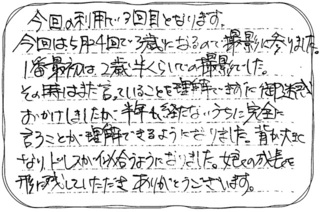 今回の利用で3回目となります。
今回は5月4回で3歳になるので撮影に参りました。
1番最初は、2歳半くらいでの撮影でした。
その時はまだ言っていることを理解できずに御迷惑
おかけしましたが、半年も経たないうちに完全に
言うことが理解できるようになりました。背が大きく
なり、ドレスが似合うようになりました。女児の成長を
形に残していただき ありがとうございます。